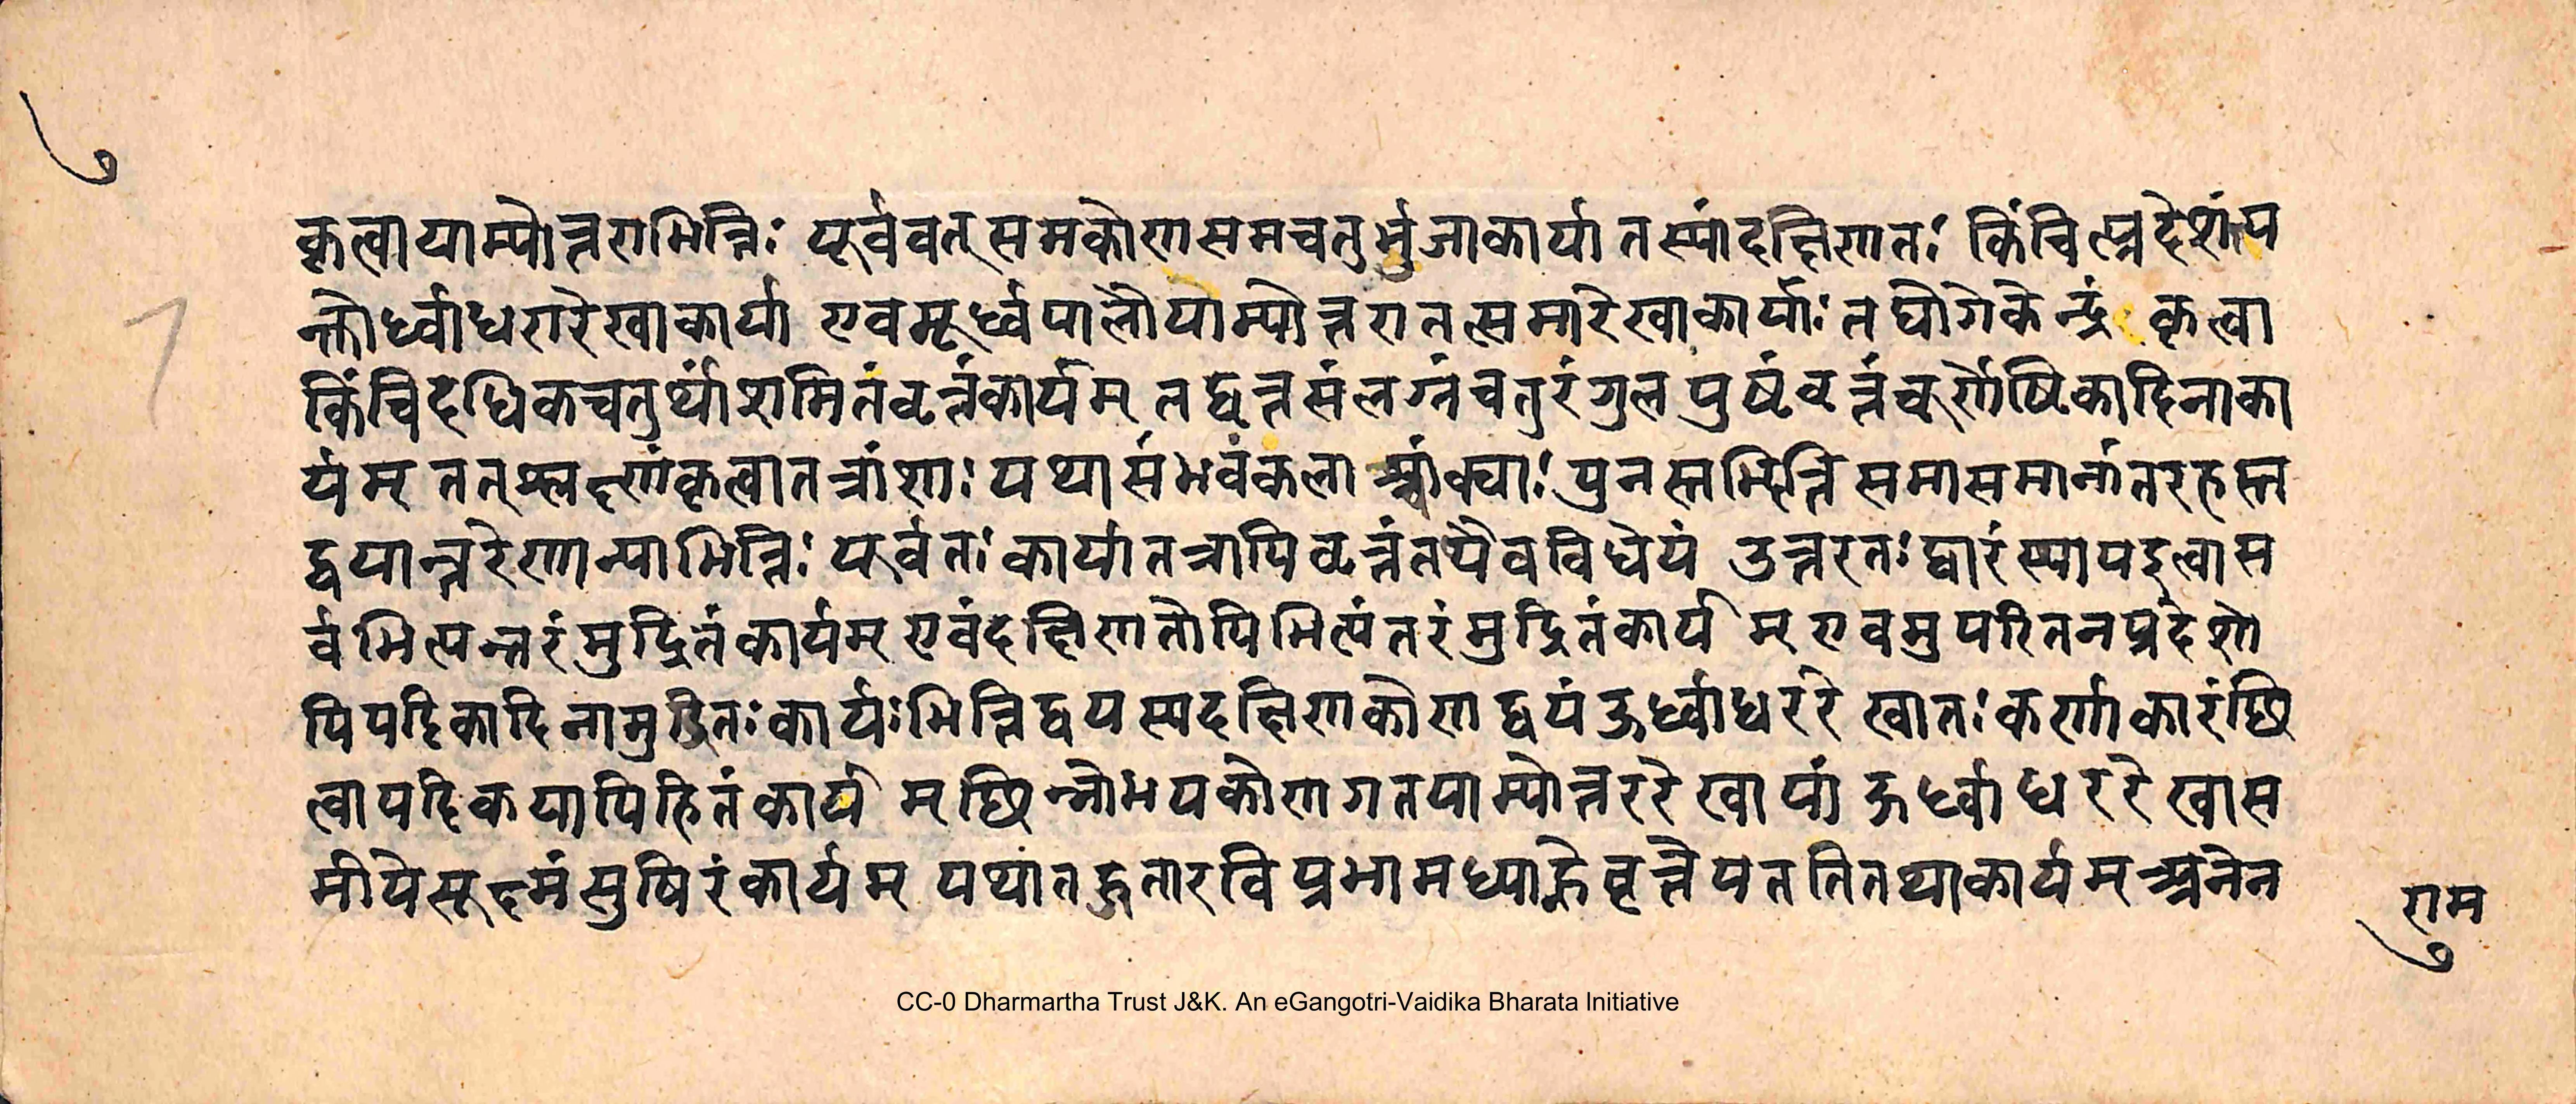 ७
कृत्वा याम्योत्तराभित्तिः पूर्ववत् समकोणसमचतुर्भुजाकार्या तस्यांदक्षिणतः किंचित्प्रदेशंत्य
क्तोर्ध्वाधरारेखाकार्या एवमूर्ध्वपालौयाम्योत्तरातत्समारेखाकार्याः तद्योगेकेन्द्रं कृत्वा
किंचिदधिकचतुर्थांशमितंवृत्तंकार्यम् तद्वृत्तसंलग्नंचतुरंगुलपुष्टंवृत्तंचूर्णेष्टिकादिनाका
र्यम् ततश्लक्ष्णंकृत्वातत्रांशाः यथासंभवंकलाश्चांक्याः पुनस्तद्भित्तिसमासमानांतरहस्त
द्वयान्तरेणान्याभित्तिः पूर्वतः कार्यातत्रापिवृत्तंतथैवविधेयं उत्तरतः द्वारंस्थापइत्वास
र्वभित्यन्तरंमुद्रितंकार्यम् एवंदक्षिणतोपिभित्यंतरंमुद्रितंकार्यम् एवमुपरितनप्रदेशो
पिपट्टिकादिनामुद्रितः कार्यः भित्तिद्वयस्यदक्षिणकोणद्वयंऊर्ध्वाधररेखातः कर्णाकारंछि
त्वापट्टिकयापिहितंकार्यम् छिन्नोभयकोणगतयाम्योत्तररेखायां ऊर्ध्वाधररेखास
मीपेसूक्ष्मंसुषिरंकार्यम् यथांतर्द्गतारविप्रभामध्याह्नेवृत्तेपततितथाकार्यम् अनेन
राम
७
1
CC-0 Dharmartha Trust J&K. An eGangotri-Vaidika Bharata Initiative